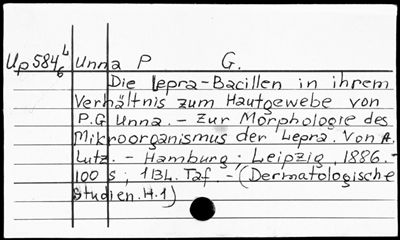 Up 584/6 L Unna P G.
Die Lepra-Bacillen in ihrem
Verhältnis zum Hautgewebe von
P.G Unna. - Zur Morphologie des
Mikroorganismus der Lepra. Von A.
Lutz. - Hamburg; Leipzig, 1886. -
100 s; 1 BL. Taf. - (Dermatologische
Studien. H.1)